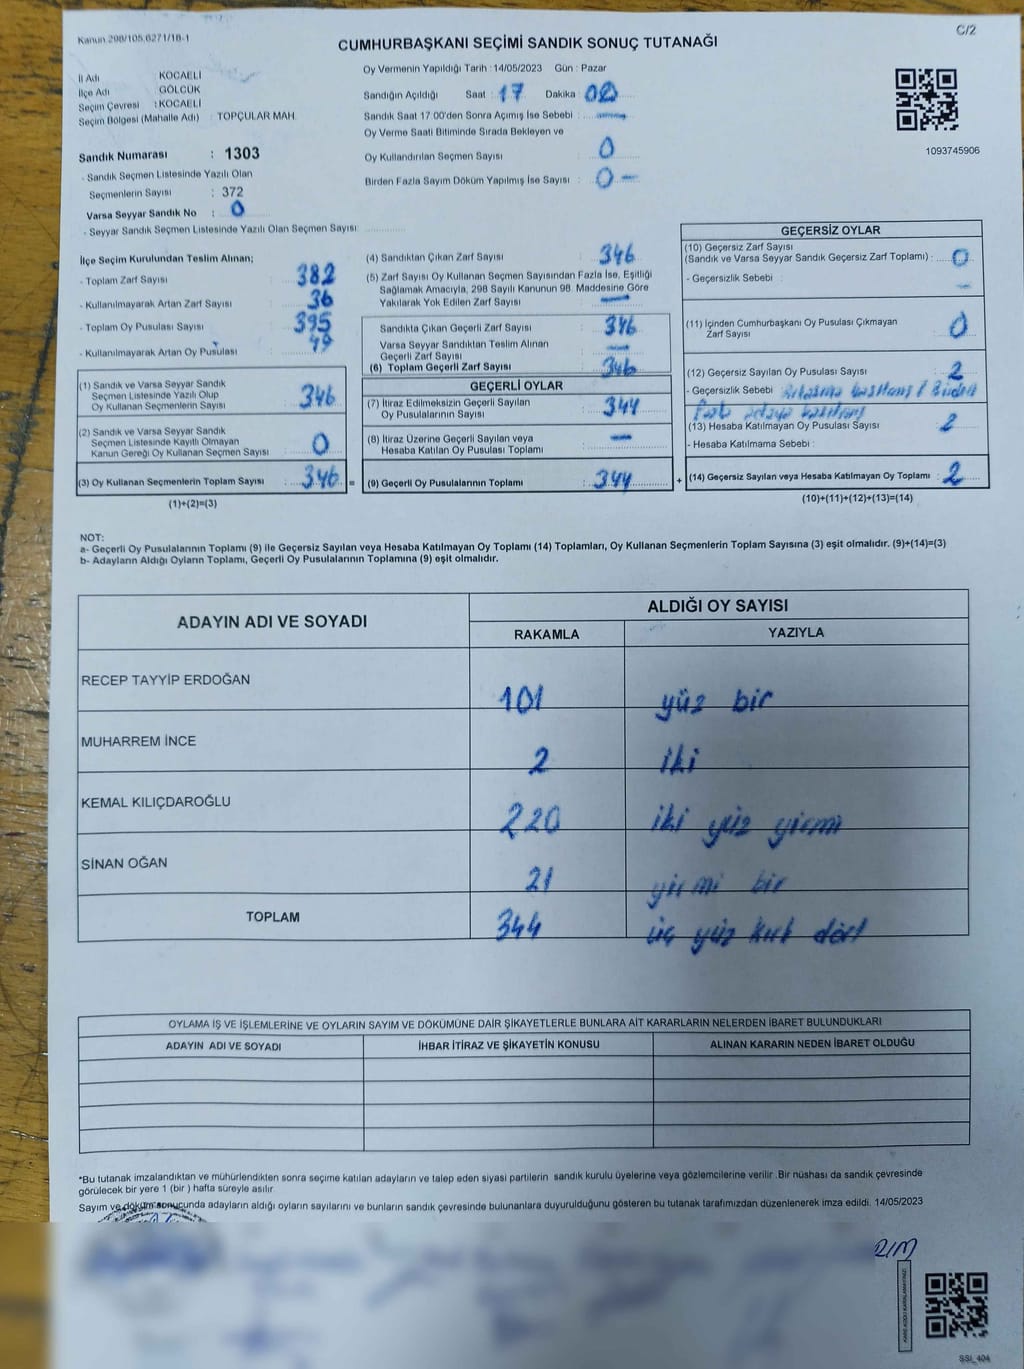 Kanun 298/105,6271/18-1
C/2
CUMHURBAŞKANI SEÇİMİ SANDIK SONUÇ TUTANAĞI
İl Adı KOCAELİ
İlçe Adı GÖLCÜK
Seçim Çevresi : KOCAELİ
Seçim Bölgesi (Mahalle Adı) : TOPÇULAR MAH.
Sandık Numarası : 1303
- Sandık Seçmen Listesinde Yazılı Olan
Seçmenlerin Sayısı : 372
Varsa Seyyar Sandık No : 0
- Seyyar Sandık Seçmen Listesinde Yazılı Olan Seçmen Sayısı
Oy Vermenin Yapıldığı Tarih : 14/05/2023 Gün : Pazar
Sandığın Açıldığı Saat : 17 Dakika : 00
Sandık Saat 17:00'den Sonra Açımış İse Sebebi : —
Oy Verme Saati Bitiminde Sırada Bekleyen ve
Oy Kullandırılan Seçmen Sayısı : 0
Birden Fazla Sayım Döküm Yapılmış İse Sayısı : 0 —
1093745906
İlçe Seçim Kurulundan Teslim Alınan;
- Toplam Zarf Sayısı : 382
- Kullanılmayarak Artan Zarf Sayısı : 36
- Toplam Oy Pusulası Sayısı : 395
- Kullanılmayarak Artan Oy Pusulası : 49
(1) Sandık ve Varsa Seyyar Sandık
Seçmen Listesinde Yazılı Olup
Oy Kullanan Seçmenlerin Sayısı : 346
(2) Sandık ve Varsa Seyyar Sandık
Seçmen Listesinde Kayıtlı Olmayan
Kanun Gereği Oy Kullanan Seçmen Sayısı : 0
(3) Oy Kullanan Seçmenlerin Toplam Sayısı : 346 =
(1)+(2)=(3)
(4) Sandıktan Çıkan Zarf Sayısı : 346
(5) Zarf Sayısı Oy Kullanan Seçmen Sayısından Fazla İse, Eşitliği
Sağlamak Amacıyla, 298 Sayılı Kanunun 98. Maddesine Göre
Yakılarak Yok Edilen Zarf Sayısı : —
Sandıkta Çıkan Geçerli Zarf Sayısı : 346
Varsa Seyyar Sandıktan Teslim Alınan
Geçerli Zarf Sayısı : —
(6) Toplam Geçerli Zarf Sayısı : 346
GEÇERLİ OYLAR
(7) İtiraz Edilmeksizin Geçerli Sayılan
Oy Pusulalarının Sayısı : 344
(8) İtiraz Üzerine Geçerli Sayılan veya
Hesaba Katılan Oy Pusulası Toplamı : —
(9) Geçerli Oy Pusulalarının Toplamı : 344 +
GEÇERSİZ OYLAR
(10) Geçersiz Zarf Sayısı
(Sandık ve Varsa Seyyar Sandık Geçersiz Zarf Toplamı) : 0
- Geçersizlik Sebebi : —
(11) İçinden Cumhurbaşkanı Oy Pusulası Çıkmayan
Zarf Sayısı : 0
(12) Geçersiz Sayılan Oy Pusulası Sayısı : 2
- Geçersizlik Sebebi
(13) Hesaba Katılmayan Oy Pusulası Sayısı : 2
- Hesaba Katılmama Sebebi :
(14) Geçersiz Sayılan veya Hesaba Katılmayan Oy Toplamı : 2
(10)+(11)+(12)+(13)=(14)
NOT:
a- Geçerli Oy Pusulalarının Toplamı (9) ile Geçersiz Sayılan veya Hesaba Katılmayan Oy Toplamı (14) Toplamları, Oy Kullanan Seçmenlerin Toplam Sayısına (3) eşit olmalıdır. (9)+(14)=(3)
b- Adayların Aldığı Oyların Toplamı, Geçerli Oy Pusulalarının Toplamına (9) eşit olmalıdır.
ADAYIN ADI VE SOYADI
ALDIĞI OY SAYISI
RAKAMLA YAZIYLA
RECEP TAYYİP ERDOĞAN 101 yüz bir
MUHARREM İNCE 2 iki
KEMAL KILIÇDAROĞLU 220 iki yüz yirmi
SİNAN OĞAN 21 yirmi bir
TOPLAM 344 üç yüz kırk dört
OYLAMA İŞ VE İŞLEMLERİNE VE OYLARIN SAYIM VE DÖKÜMÜNE DAİR ŞİKAYETLERLE BUNLARA AİT KARARLARIN NELERDEN İBARET BULUNDUKLARI
ADAYIN ADI VE SOYADI İHBAR İTİRAZ VE ŞİKAYETİN KONUSU ALINAN KARARIN NEDEN İBARET OLDUĞU
*Bu tutanak imzalandıktan ve mühürlendikten sonra seçime katılan adayların ve talep eden siyasi partilerin sandık kurulu üyelerine veya gözlemcilerine verilir. Bir nüshası da sandık çevresinde
görülecek bir yere 1 (bir ) hafta süreyle asılır.
Sayım ve döküm sonucunda adayların aldığı oyların sayılarını ve bunların sandık çevresinde bulunanlara duyurulduğunu gösteren bu tutanak tarafımızdan düzenlenerek imza edildi. 14/05/2023
SSİ_404